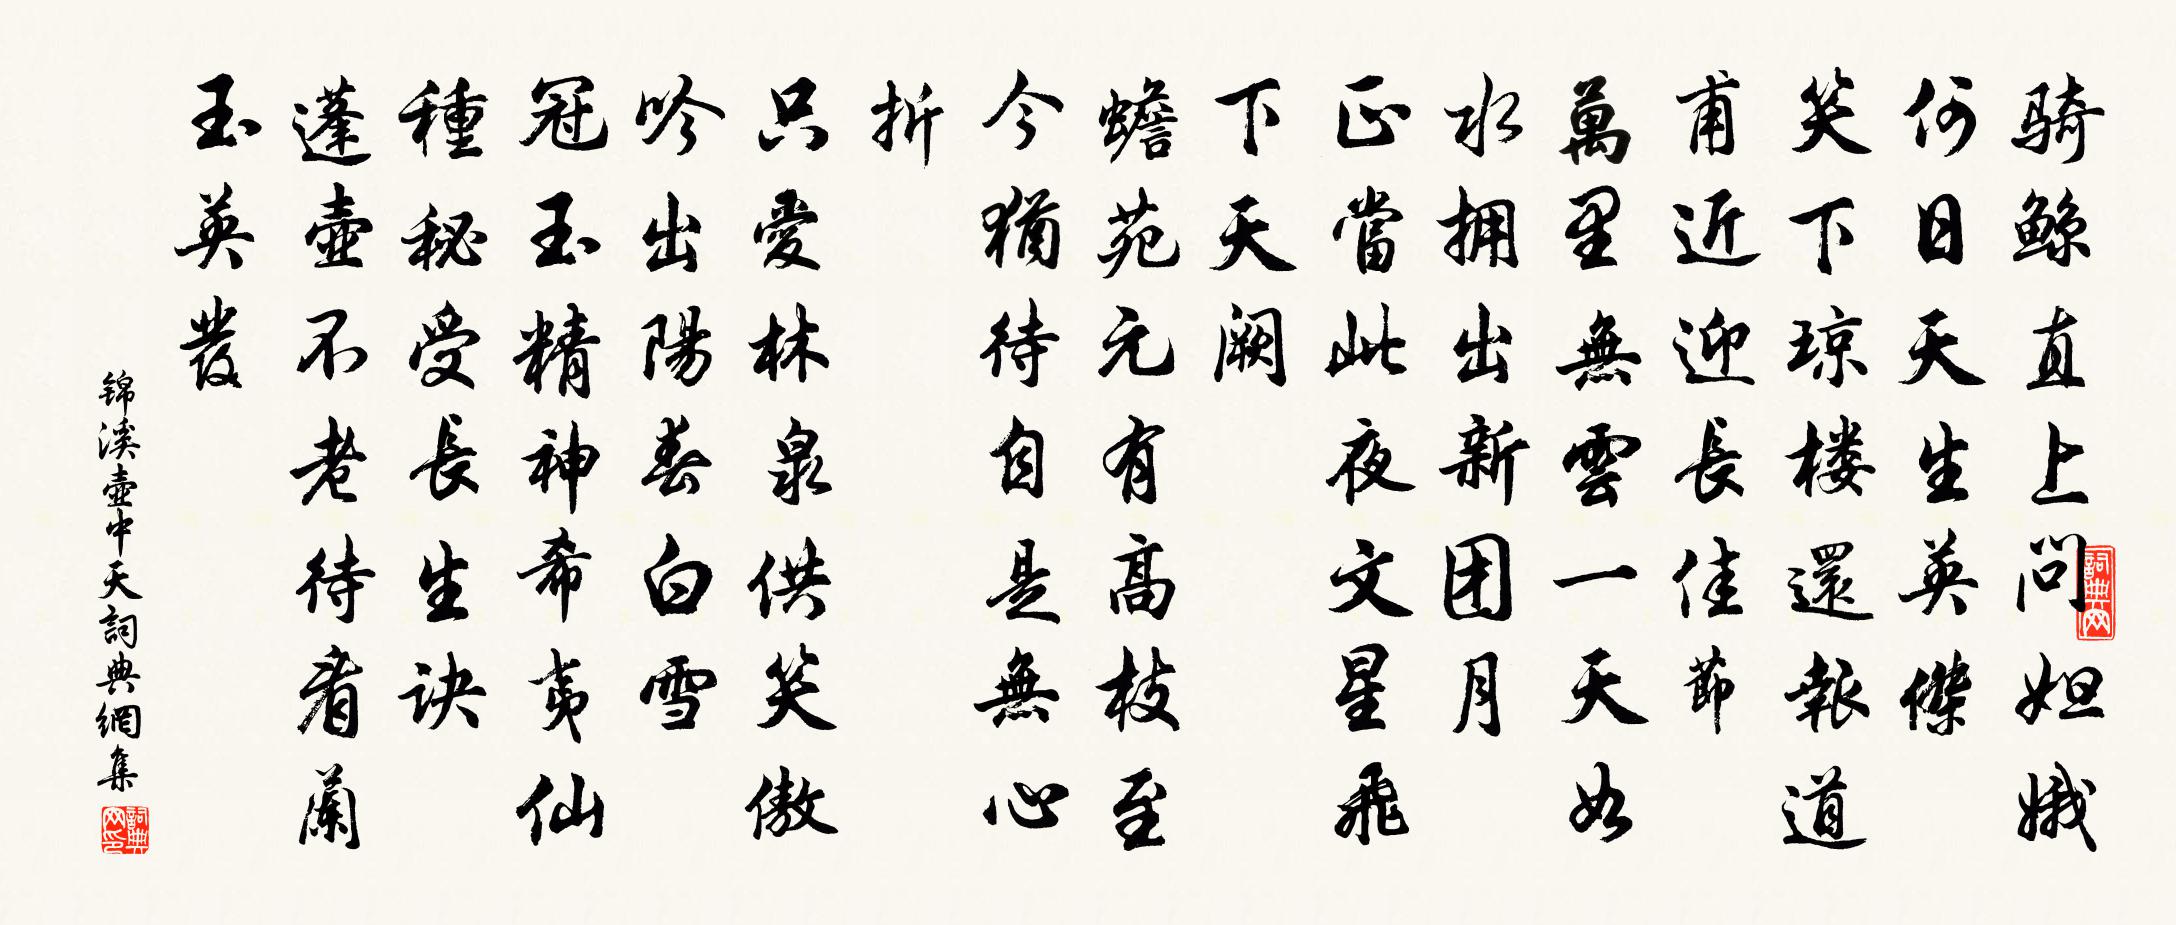 骑鲸直上问妲娥
何日天生英傑
笑下琼楼還報道
甫近迎長佳节
萬里無雲一天如
水拥出新团月
正當此夜文星飛
下天阙
蟾苑元有高枝至
今猶待自是無心
折
只愛林泉供笑傲
吟出陽春白雪
冠玉精神希夷仙
種秘受長生诀
蓬壶不老待看蘭
玉英發
锦溪壶中天詞典網集
詞典网
詞典网印